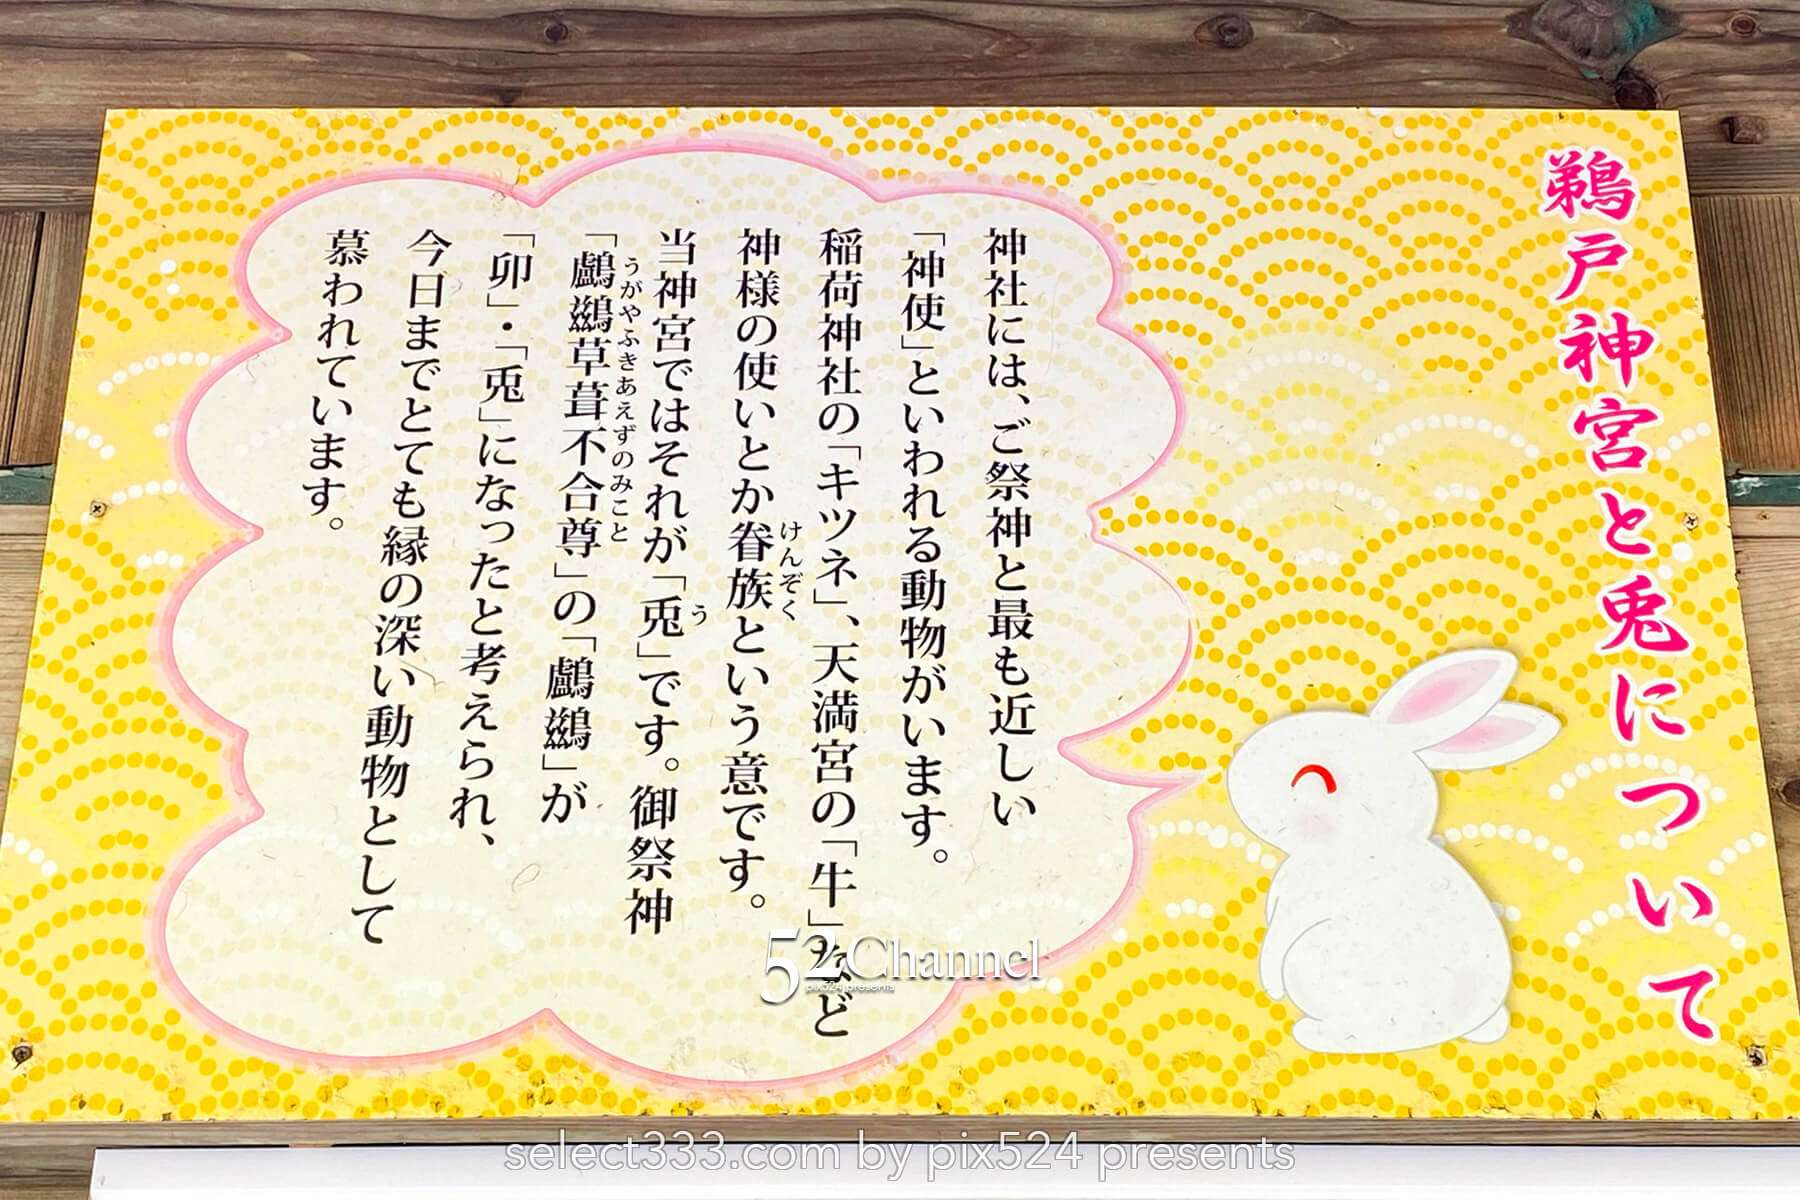 鵜戸神宮と兎について
神社には、ご祭神と最も近しい
「神使」といわれる動物がいます。
稲荷神社の「キツネ」、天満宮の「牛」など
神様の使いとか眷族という意です。
けんぞく
当神宮ではそれが「兎」です。御祭神
う
「鸕鷀草葺不合尊」の「鸕鷀」が
うがやふきあえずのみこと
「卯」・「兎」になったと考えられ、
今日までとても縁の深い動物として
慕われています。
52Channel
pix524 presents
select333.com by pix524 presents